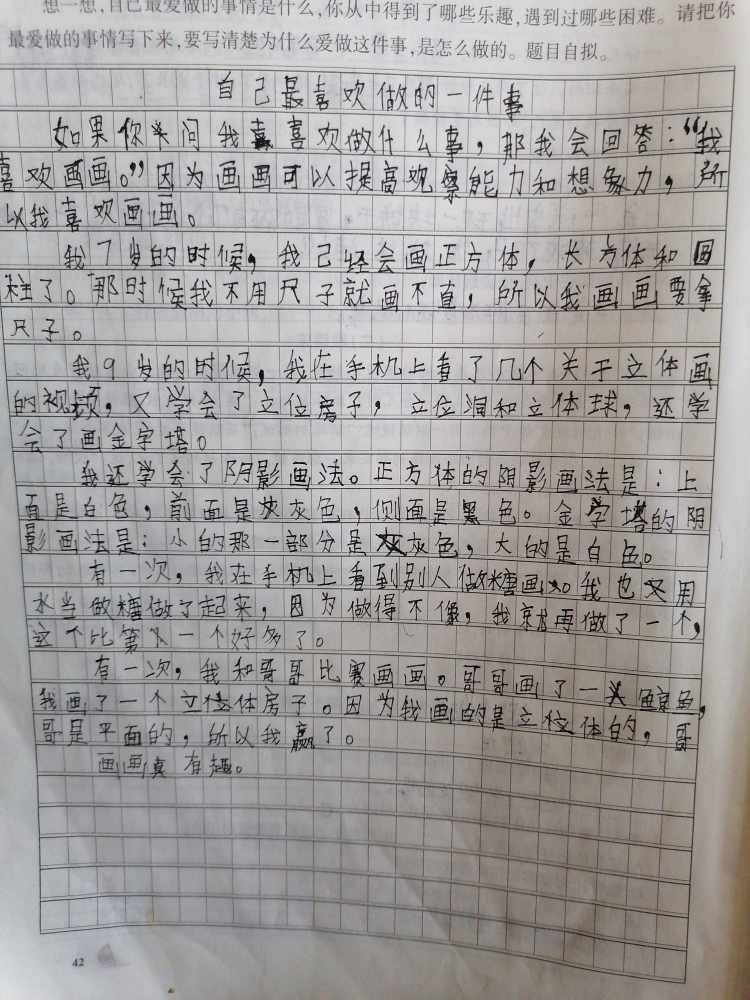 想一想,自己最爱做的事情是什么,你从中得到了哪些乐趣,遇到过哪些困难。请把你
最爱做的事情写下来,要写清楚为什么爱做这件事,是怎么做的。题目自拟。
自己最喜欢做的一件事
如果你问我喜欢做什么事,那我会回答:“我
喜欢画画。”因为画画可以提高观察能力和想象力,所
以我喜欢画画。
我7岁的时候,我己经会画正方体,长方体和圆
柱了。那时候我不用尺子就画不直,所以我画画要拿
尺子。
我9岁的时候,我在手机上看了几个关于立体画
的视频,又学会了立位房子,立位洞和立体球,还学
会了画金字塔。
我还学会了阴影画法。正方体的阴影画法是:上
面是白色,前面是灰色,侧面是黑色。金字塔的阴
影画法是:小的那一部分是灰色,大的是白色。
有一次,我在手机上看到别人做糖画。我也用
水当做糖做了起来,因为做得不像,我就再做了一个,
这个比第一个好多了。
有一次,我和哥哥比赛画画。哥哥画了一鲸鱼,
我画了一个立体房子。因为我画的是立体的,哥
哥是平面的,所以我赢了。
画画真有趣。
42